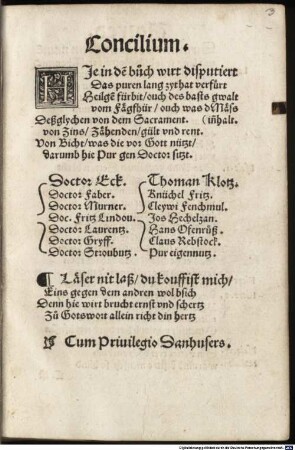 Concilium.
HIe in dẽ bůch wirt disputiert
Das puren lang zythat verfürt
Heilgẽ fürbit/ouch des basts gwalt
vom Fägfhür/ ouch was dMäss
Deßglychen von dem Sacrament. (iñhalt.
von Zins/ Zähenden/gült vnd rent.
Von Bicht/was die vor Gott nützt/
darumb hie Pur gen Doctor sitzt.
Doctor Eck. Thoman Klotz.
Doctor Faber. Knüchel Fritz.
Doctor Murner. Cleywi Fenchmul.
Doc. Fritz Lindou. Jos Hechelzan.
Doctor Laurentz. Hans Ofenrůß.
Doctor Gryff. Claus Rebstock.
Doctor Stroubutz. Pur eigennutz.
¶ Läser nit laß/ du kouffist mich/
Eins gegen dem andren wol bsich
Denn hie wirt brucht ernst vnd schertz
Zů Gotswort allein richt din hertz
Cum Priuilegio Danhusers.